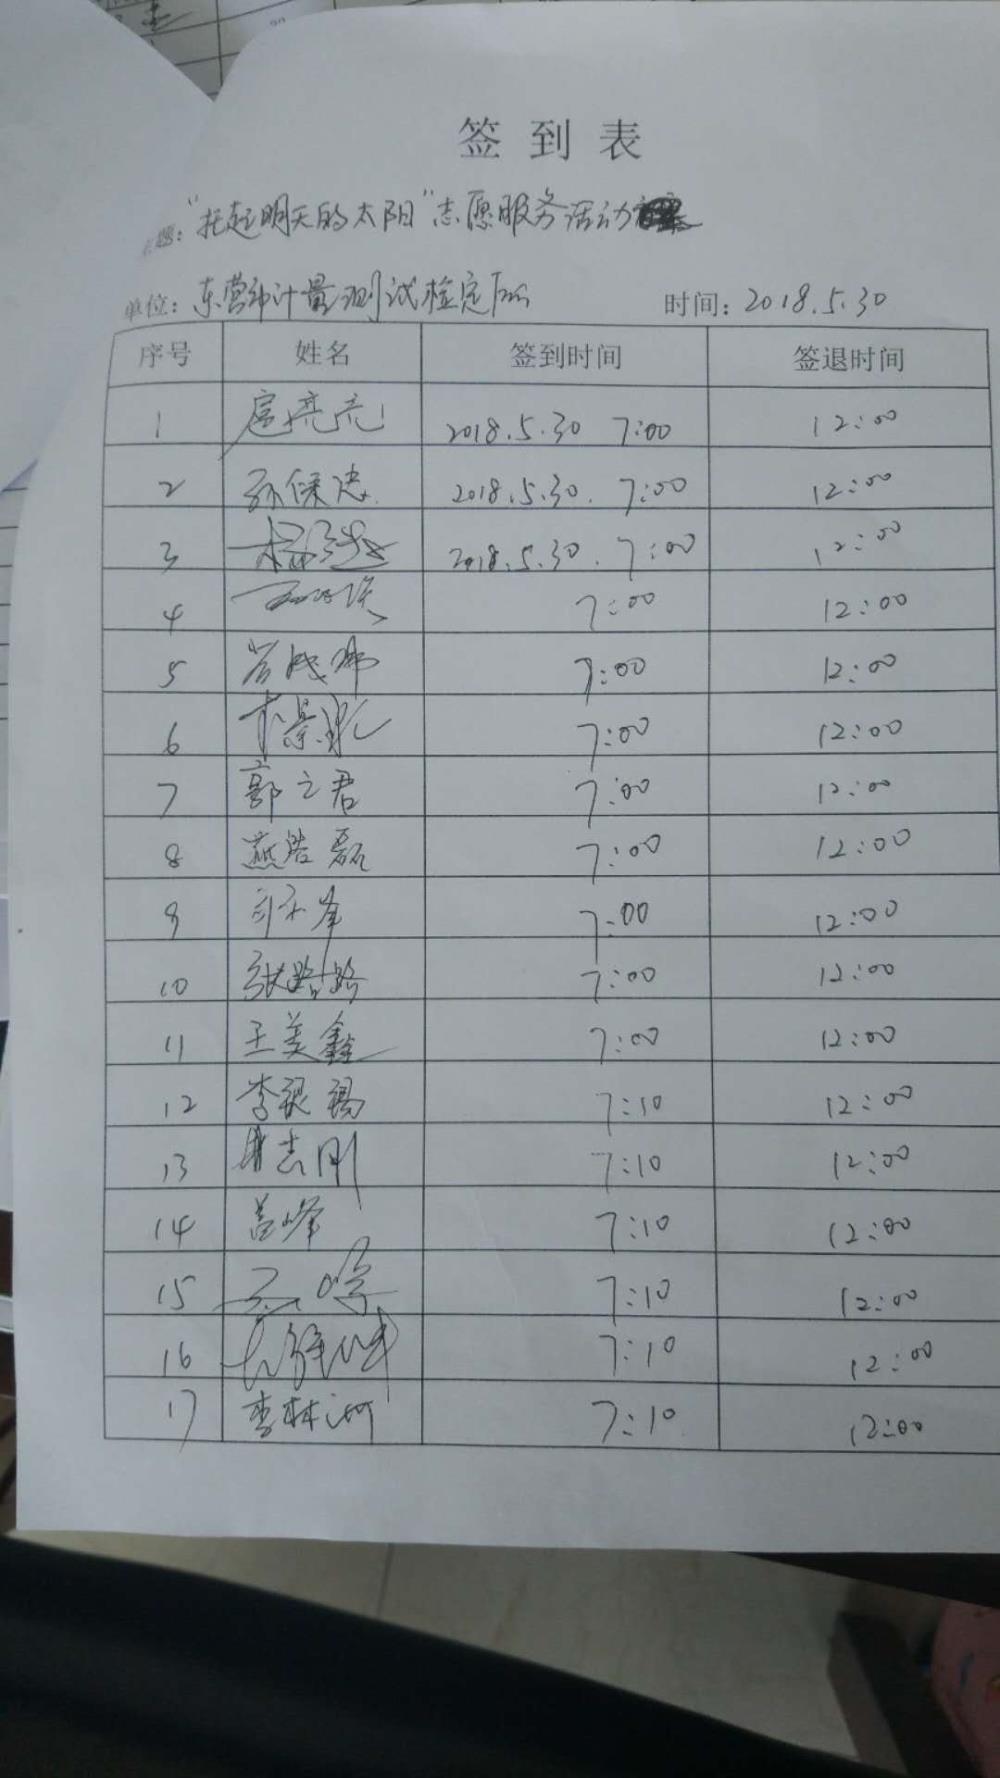 签到表
题："托起明天的太阳"志愿服务活动
单位：东营市计量测试检定所 时间：2018.5.30
序号 姓名 签到时间 签退时间
1 扈亮亮 2018.5.30 7:00 12:00
2 孙保忠 2018.5.30. 7:00 12:00
3 2018.5.30. 7:00 12:00
4 7:00 12:00
5 7:00 12:00
6 7:00 12:00
7 郭之君 7:00 12:00
8 燕浩磊 7:00 12:00
9 7:00 12:00
10 张路路 7:00 12:00
11 王美鑫 7:00 12:00
12 李银锡 7:10 12:00
13 志刚 7:10 12:00
14 峰 7:10 12:00
15 7:10 12:00
16 7:10 12:00
17 李林河 7:10 12:00